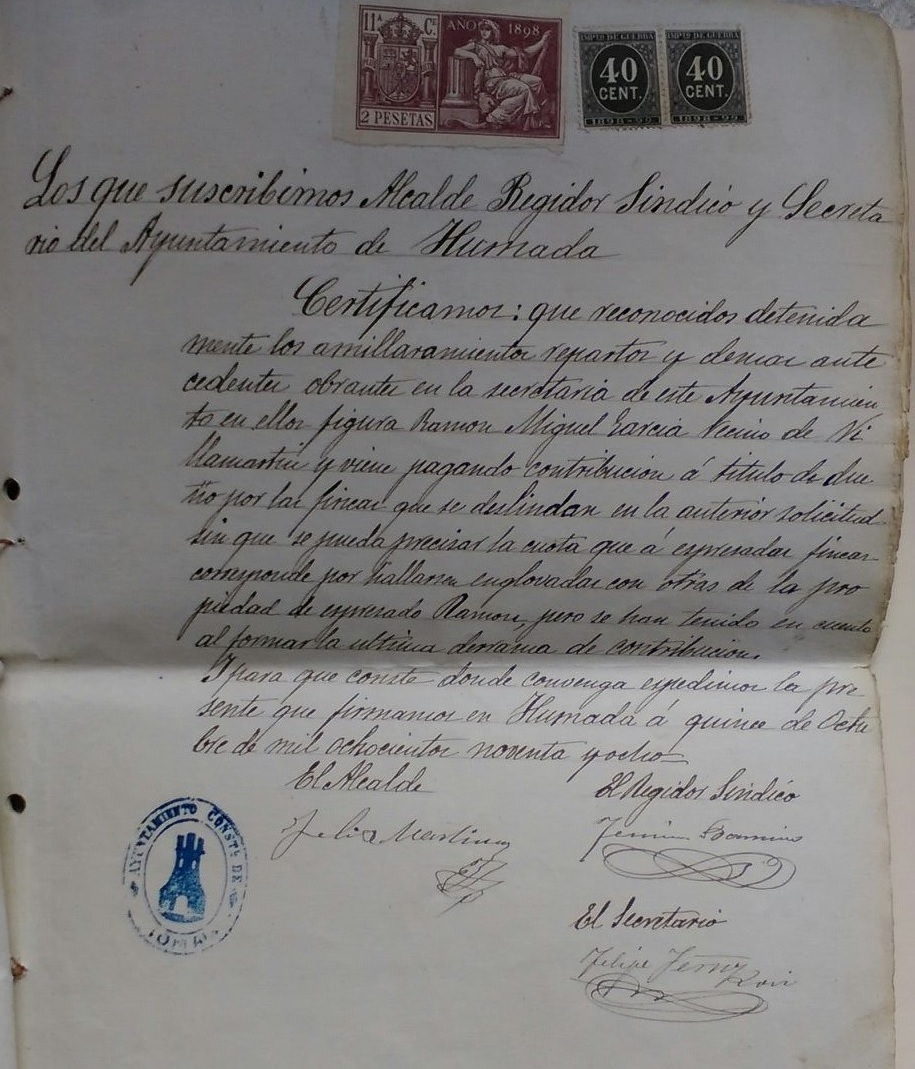 11ª Cº AÑO 1898
2 PESETAS
IMPTO DE GUERRA
40
CENT.
1898-99
IMPTO DE GUERRA
40
CENT.
1898-99
Los que suscribimos Alcalde Regidor Sindico y Secreta
rio del Ayuntamiento de Humada
Certificamos: que reconocidos detenida
mente los amillaramientos repartos y demas ante
cedentes obrantes en la secretaria de este Ayuntamien
to en ellos figura Ramon Miguel Garcia Vecino de Vi
llamartin y viene pagando contribucion á titulo de due
ño por las fincas que se deslindan en la anterior solicitud
sin que se pueda precisar la cuota que á espresadas fincas
corresponde por hallarse englovadas con otras de la pro
piedad de espresado Ramon, pero se han tenido en cuenta
al formar la ultima derrama de contribucion.
Y para que conste donde convenga espedimos la pre
sente que firmamos en Humada á quince de Octu
bre de mil ochocientos noventa y ocho
El Alcalde
El Regidor Sindico
Felix Martinez
El Secretario
Felipe
AYUNTAMIENTO CONSTL DE